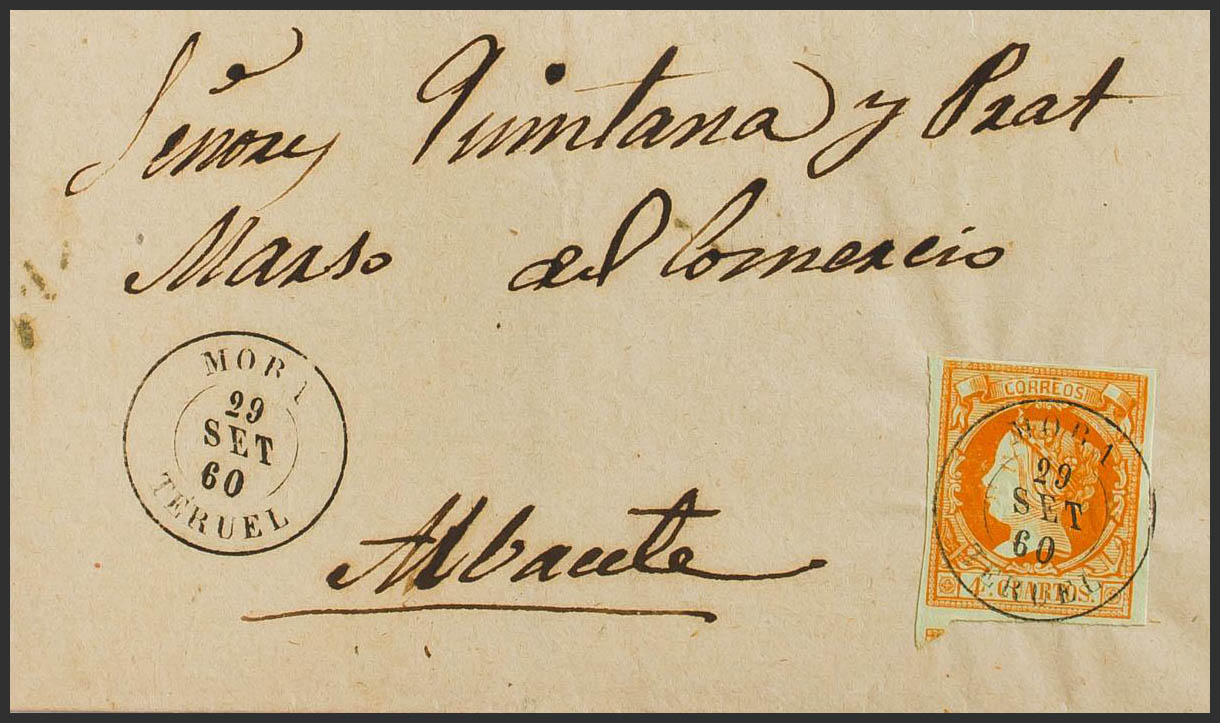 Señores Quintana y Prat
Marso del Comercio
MORA
29
SET
60
TERUEL
Albacete
CORREOS
MORA
29
SET
60
TERUEL
4 CUARTOS.